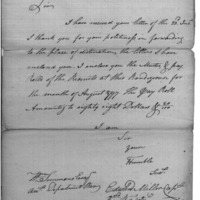 Sir
I have received your letter of the 22
I thank you for your politeness in forwarding
to the place of destination, the letters I have
enclosed you. I enclose you the Muster & pay
Rolls of the Recruits at this Rendezvous for
the months of August 1797. The Pay Roll
Amounting to eighty eight Dollars &
I am
Sir
your
Humble
Servt.
Wm Simmons Esqr
Edwd. Miller Capt.